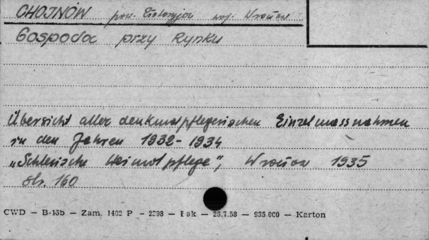 CHOJNÓW pow. Złotoryja woj. Wrocław
Gospoda przy Rynku
Übersicht aller denkmalpflegerischen Einzelmassnahmen
in den Jahren 1932-1934
„Schlesische Heimatpflege", Wrocław 1935
str. 160
CWD — B-13b — Zam. 1402 P — 2298 — Pak — 23.7.58 — 535.000 — Karton